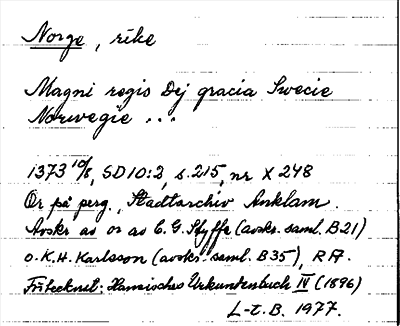 Norge, rike
Magni regis Dej gracia Swecie
Norwegie ...
1373 10/8, SD10:2, s.215, nr X 248
Or på perg., Stadtarchiv Anklam.
Avskr av or av C.G. Styffe (avskr. saml. B21)
o. K.H. Karlsson (avskr. saml. B35), RA.
Förtecknat: Hansisches Urkundenbuch IV (1896)
L-t. B. 1977.